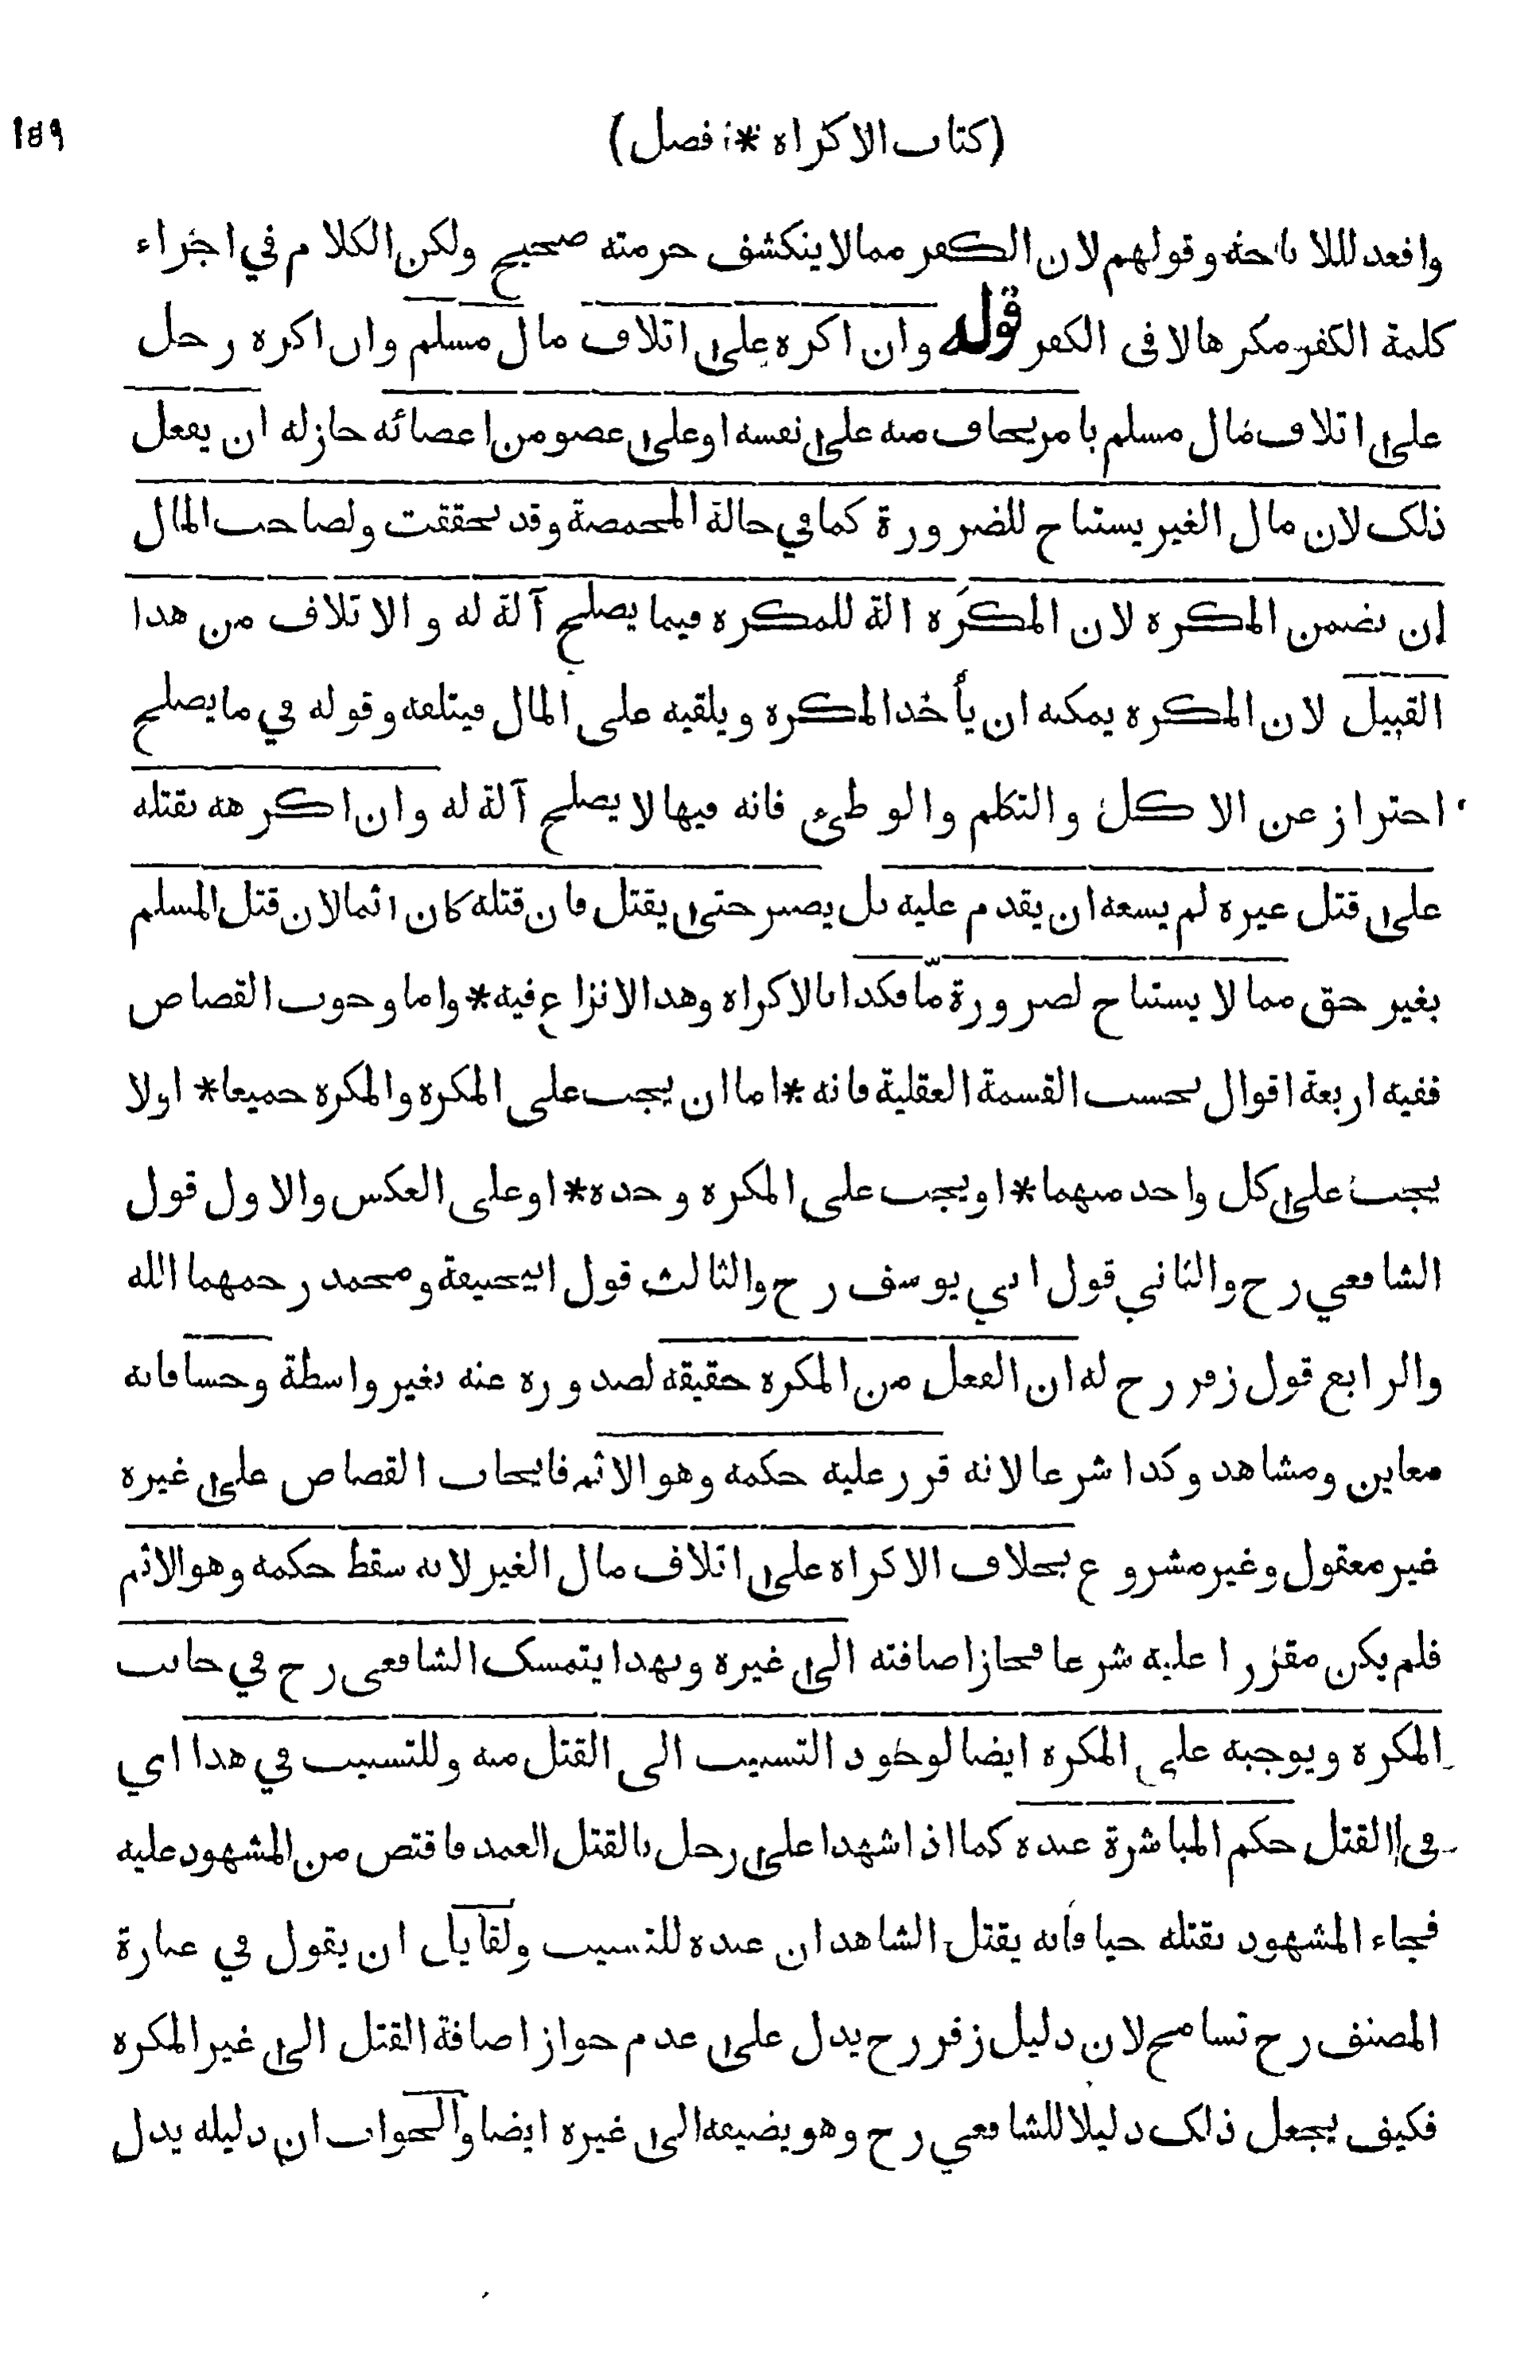 (كتاب الاكراه * فصل) ١٨٩
وافعد للاباحة وقولهم لان الكفر مما لا ينكشف حرمته صحيح ولكن الكلام في اجراء
كلمة الكفر مكرها لا في الكفر قوله وان اكره على اتلاف مال مسلم وان اكره رجل
على اتلاف مال مسلم بامر يخاف منه على نفسه او على عضو من اعضائه جاز له ان يفعل
ذلك لان مال الغير يستباح للضرورة كما في حالة المخمصة وقد تحققت ولصاحب المال
ان يضمن المكره لان المكرَه الة للمكره فيما يصلح آلة له والاتلاف من هذا
القبيل لان المكره يمكنه ان يأخذ المكره ويلقيه على المال فيتلفه وقوله في ما يصلح
احتراز عن الاكل والتكلم والوطئ فانه فيها لا يصلح آلة له وان اكرهه بقتله
على قتل غيره لم يسعه ان يقدم عليه بل يصبر حتى يقتل فان قتله كان اثما لان قتل المسلم
بغير حق مما لا يستباح لضرورة مّا فكذا بالاكراه وهذا لا نزاع فيه * واما وجوب القصاص
ففيه اربعة اقوال بحسب القسمة العقلية فانه * اما ان يجب على المكره والمكره جميعا * اولا
يجب على كل واحد منهما * او يجب على المكره وحده * او على العكس والاول قول
الشافعي رح والثاني قول ابي يوسف رح والثالث قول ابيحنيفة ومحمد رحمهما الله
والرابع قول زفر رح له ان الفعل من المكره حقيقه لصدوره عنه بغير واسطة وحسا فانه
معاين ومشاهد وكذا شرعا لانه قرر عليه حكمه وهو الاثم فايجاب القصاص على غيره
غير معقول وغير مشروع بخلاف الاكراه على اتلاف مال الغير لانه سقط حكمه وهو الاثم
فلم يكن مقررا عليه شرعا فجاز اضافته الى غيره وبهذا يتمسك الشافعى رح في جانب
المكره ويوجبه على المكره ايضا لوجود التسبيب الى القتل منه وللتسبيب في هذا اي
فى القتل حكم المباشرة عنده كما اذا شهدا على رجل بالقتل العمد فاقتص من المشهود عليه
فجاء المشهود بقتله حيا فانه يقتل الشاهدان عنده للتسبيب ولقايل ان يقول في عبارة
المصنف رح تسامح لان دليل زفر رح يدل على عدم جواز اضافة القتل الى غير المكره
فكيف يجعل ذلك دليلا للشافعي رح وهو يضيفه الى غيره ايضا والجواب ان دليله يدل